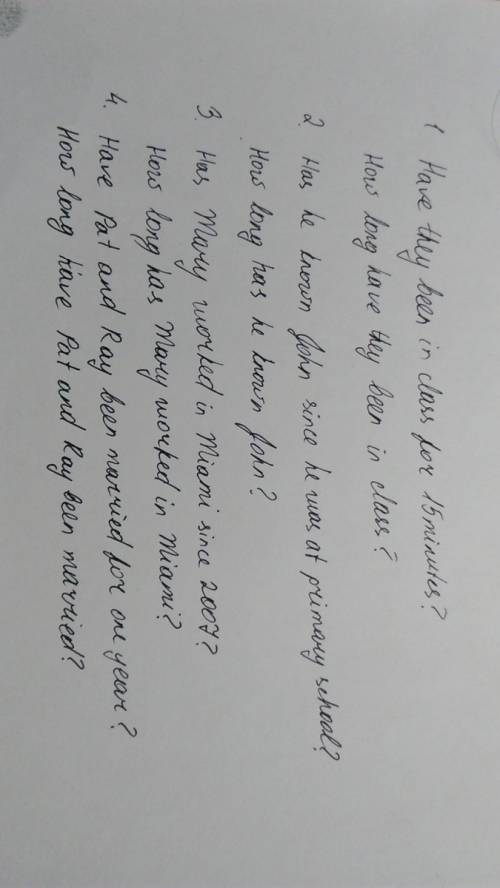 1 Have they been in class for 15 minutes?
How long have they been in class?
2. Has he known John since he was at primary school?
How long has he known John?
3. Has Mary worked in Miami since 2007?
How long has Mary worked in Miami?
4. Have Pat and Ray been married for on year?
How long have Pat and Ray been married?